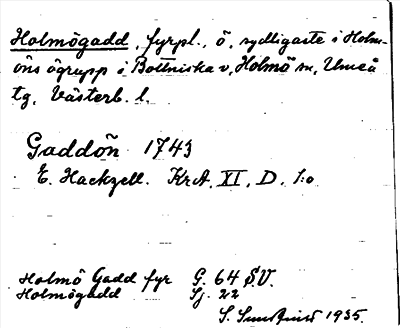 Holmögadd, fyrpl., ö, sydligaste i Holm-
öns ögrupp i Bottniska v, Holmö sn, Umeå
tg, Västerb. l.
Gaddön 1743
E. Hackzell. KrA. XI. D. 1:o
Holmö Gadd fyr G. 64 S.V.
Holmögadd Sj. 22
S. 1935.